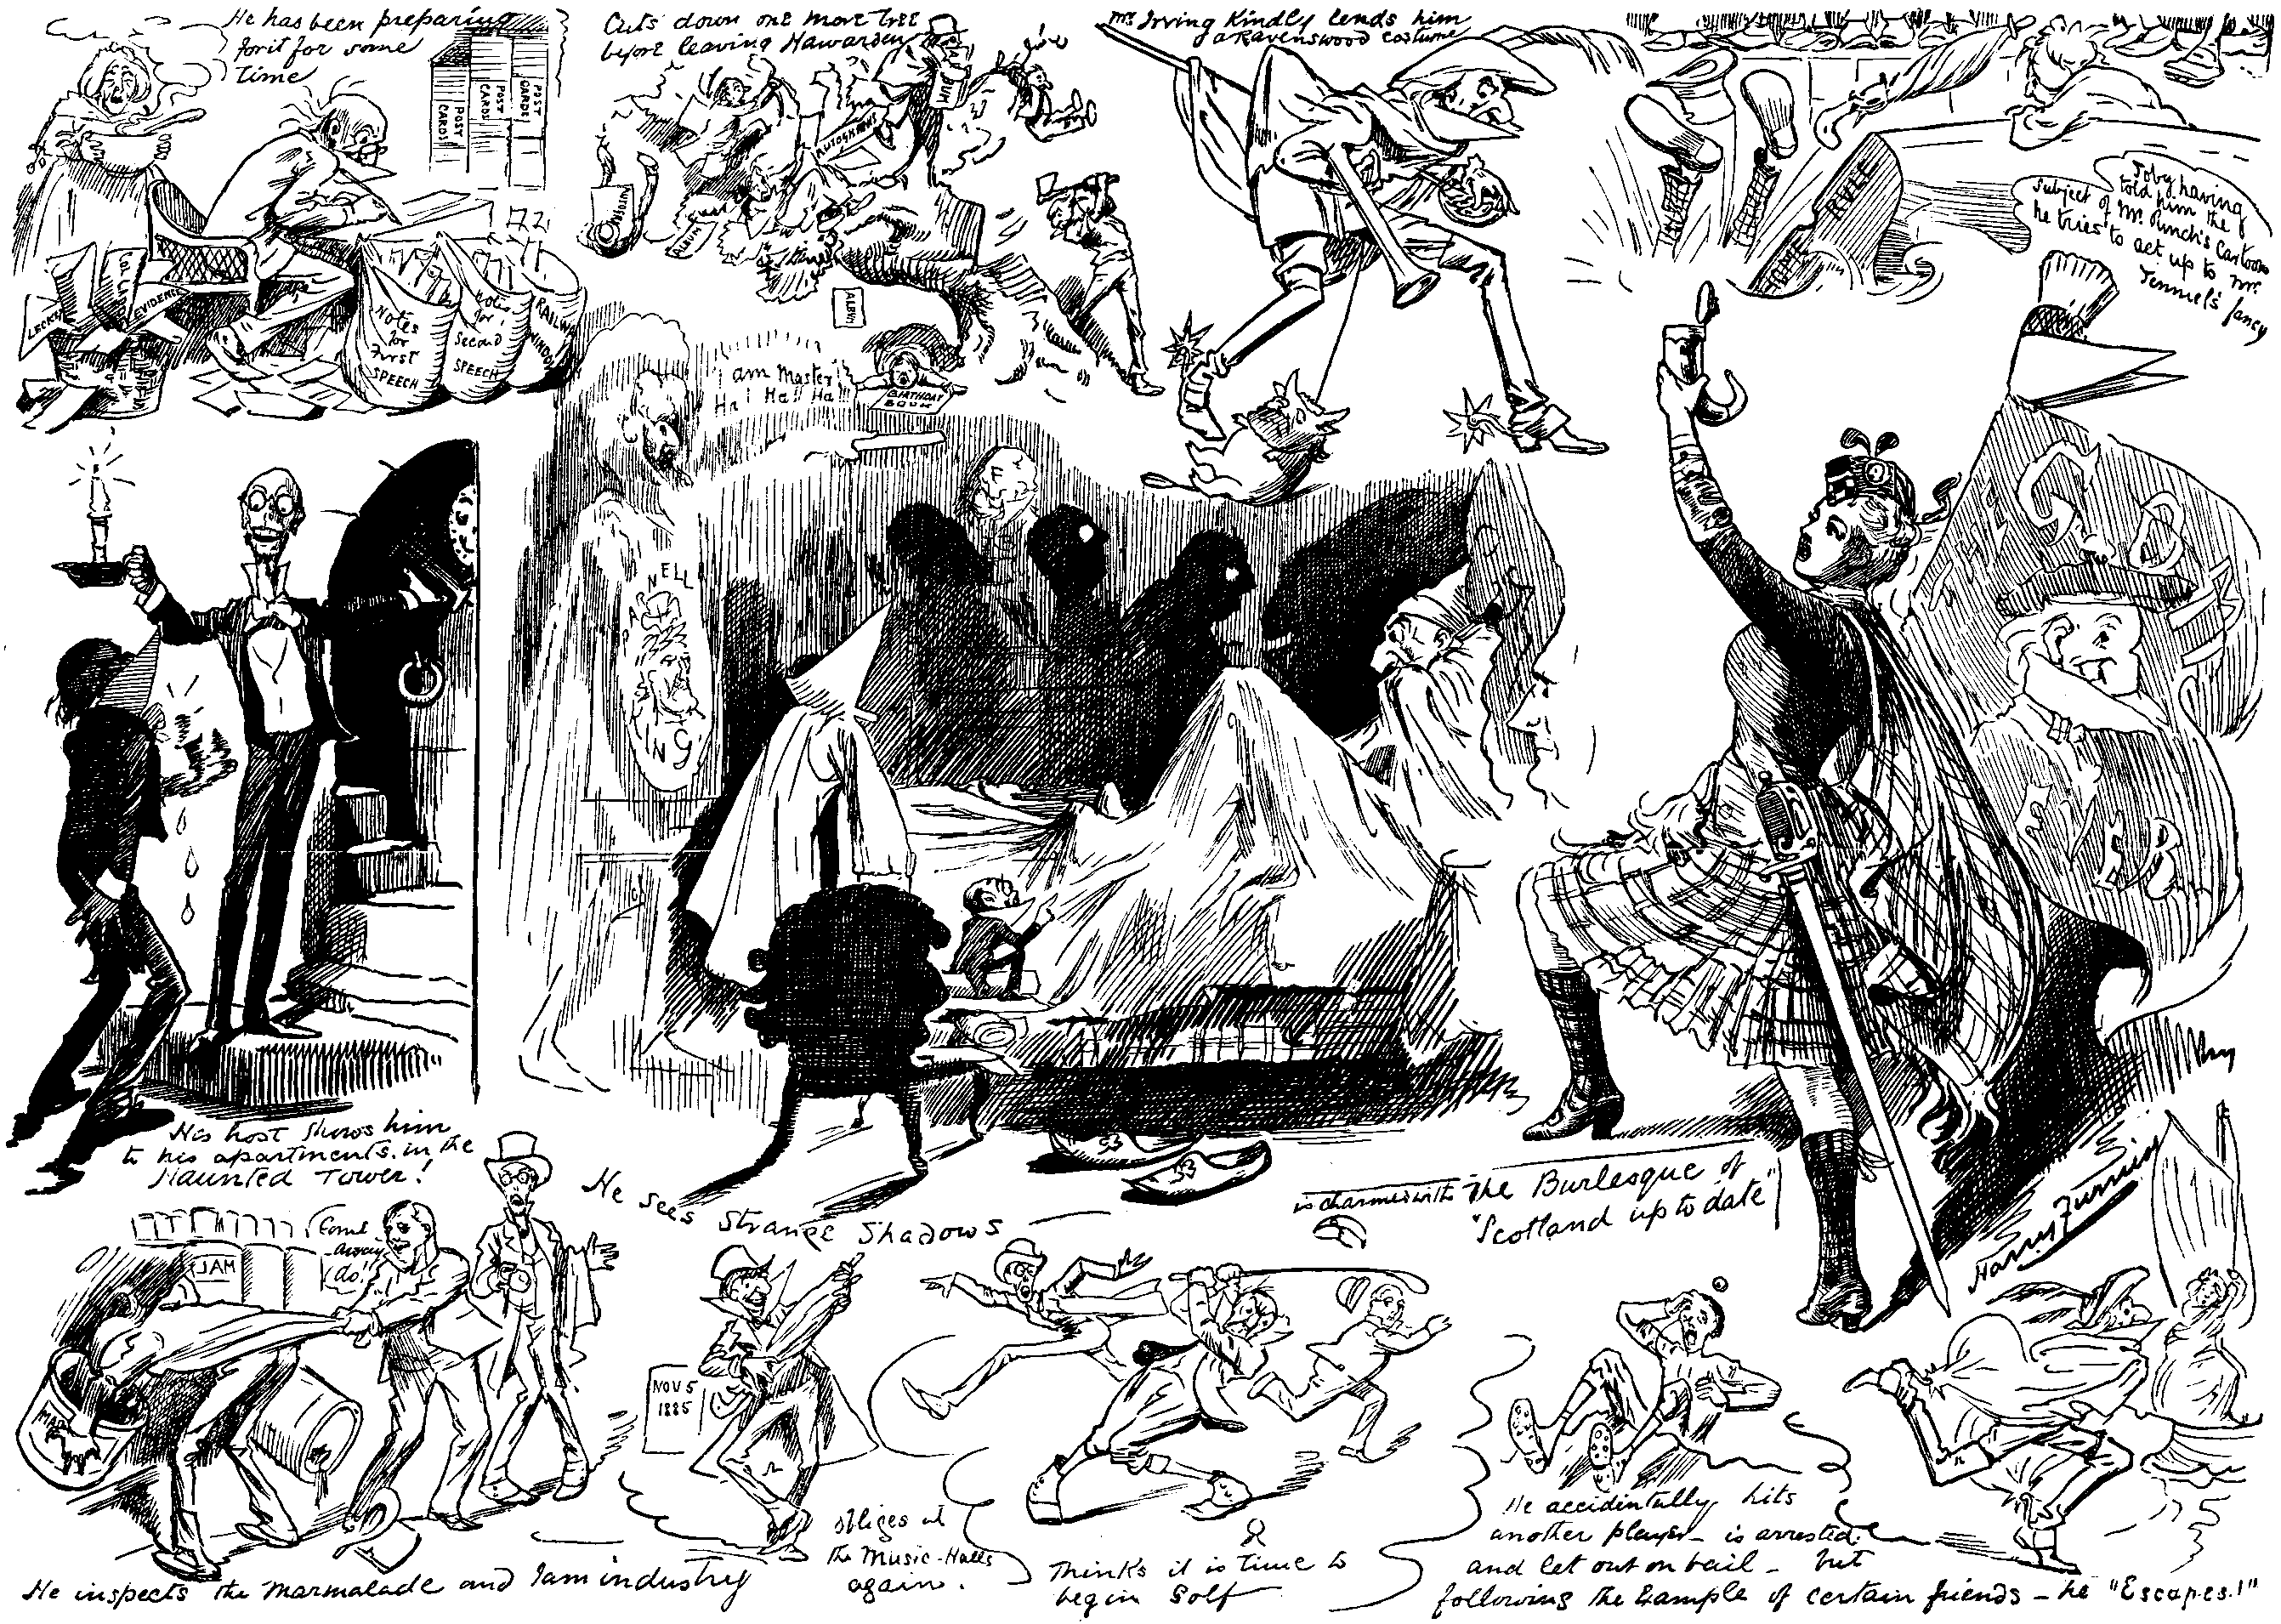 He has been preparing
for it for some
time
POST
CARDS
POST
CARDS
POST
CARDS
LECKY
EVIDENCE
Notes
for
First
SPEECH
Notes
for
Second
SPEECH
RAILWAY
WINDOW
Cuts down one more tree
before leaving Hawarden
ALBUM
AUTOGRAPHS
ALBUM
ALBUM
BIRTHDAY
BOOK
Mr Irving Kindly lends him
a Ravenswood costume
HOME
RULE
Toby having
told him the
subject of Mr. Punch's Cartoon
he tries to act up to Mr.
Tenniel's fancy
I am Master
Ha! Ha!! Ha!!!
PARNELL
KING
His host shows him
to his apartments in the
Haunted Tower!
He sees Strange Shadows
53
53
is charmed with The Burlesque of
"Scotland up to date"
Harry Furniss
JAM
Come
away
do!
MAR
He inspects the Marmalade and Jam industry
NOV 5
1885
obliges at
the Music-Halls
again.
Thinks it is time to
begin Golf
He accidentally hits
another player — is arrested
and let out on bail — but
following the Example of certain friends — he "Escapes!"